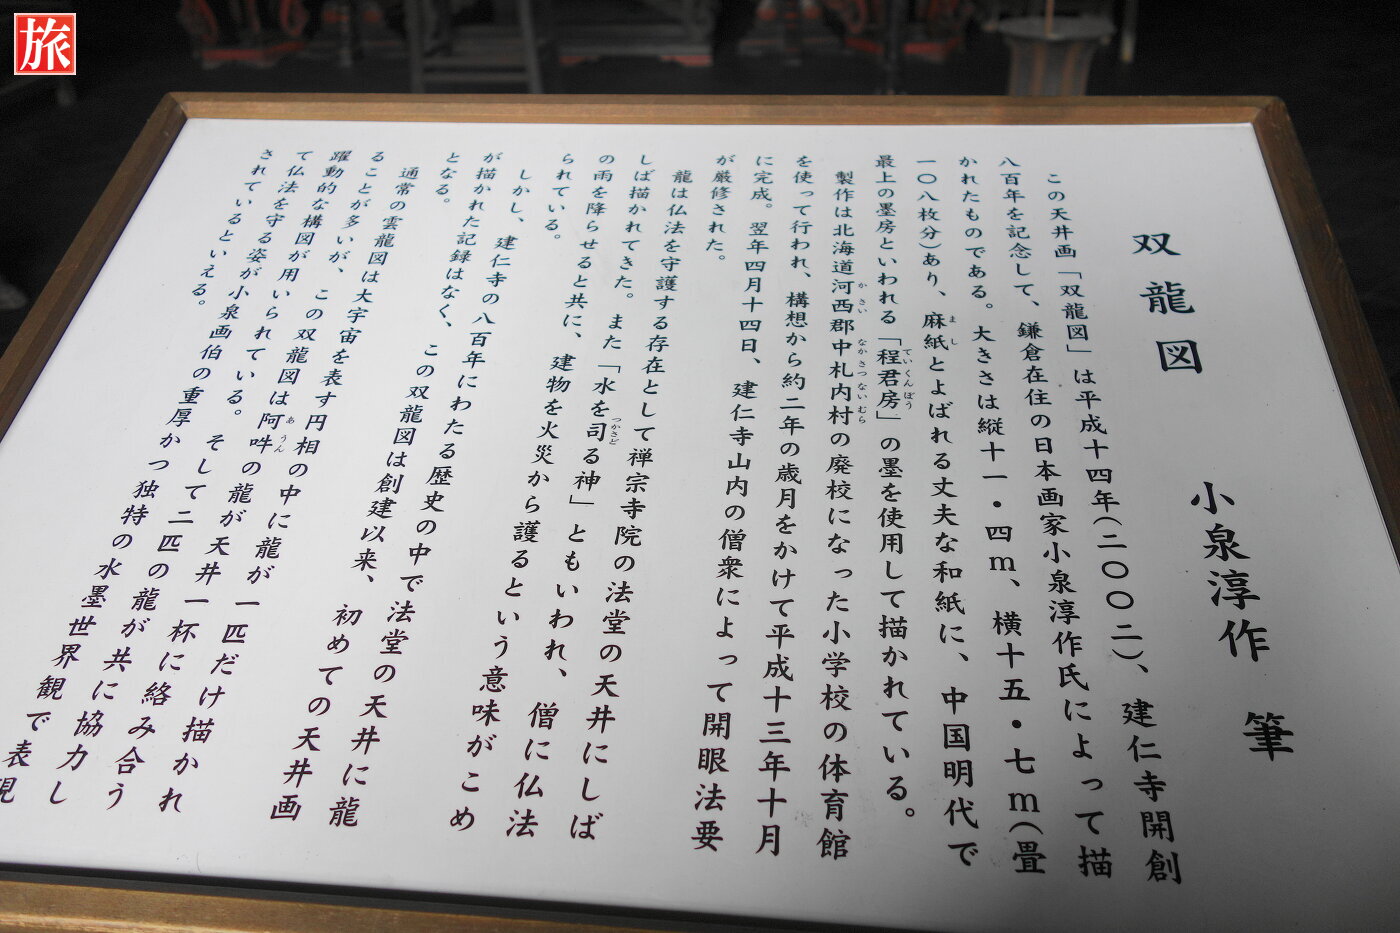 旅
双龍図　小泉淳作　筆
この天井画「双龍図」は平成十四年(二〇〇二)、建仁寺開創
八百年を記念して、鎌倉在住の日本画家小泉淳作氏によって描
かれたものである。大きさは縦十一・四ｍ、横十五・七ｍ(畳
一〇八枚分)あり、麻紙とよばれる丈夫な和紙に、中国明代で
まし
最上の墨房といわれる「程君房」の墨を使用して描かれている。
ていくんぼう
製作は北海道河西郡中札内村の廃校になった小学校の体育館
かさい　なかさつないむら
を使って行われ、構想から約二年の歳月をかけて平成十三年十月
に完成。翌年四月十四日、建仁寺山内の僧衆によって開眼法要
が厳修された。
龍は仏法を守護する存在として禅宗寺院の法堂の天井にしば
しば描かれてきた。また「水を司る神」ともいわれ、僧に仏法
つかさど
の雨を降らせると共に、建物を火災から護るという意味がこめ
られている。
しかし、建仁寺の八百年にわたる歴史の中で法堂の天井に龍
が描かれた記録はなく、この双龍図は創建以来、初めての天井画
となる。
通常の雲龍図は大宇宙を表す円相の中に龍が一匹だけ描かれ
ることが多いが、この双龍図は阿吽の龍が天井一杯に絡み合う
あうん
躍動的な構図が用いられている。そして二匹の龍が共に協力し
て仏法を守る姿が小泉画伯の重厚かつ独特の水墨世界観で表現
されているといえる。